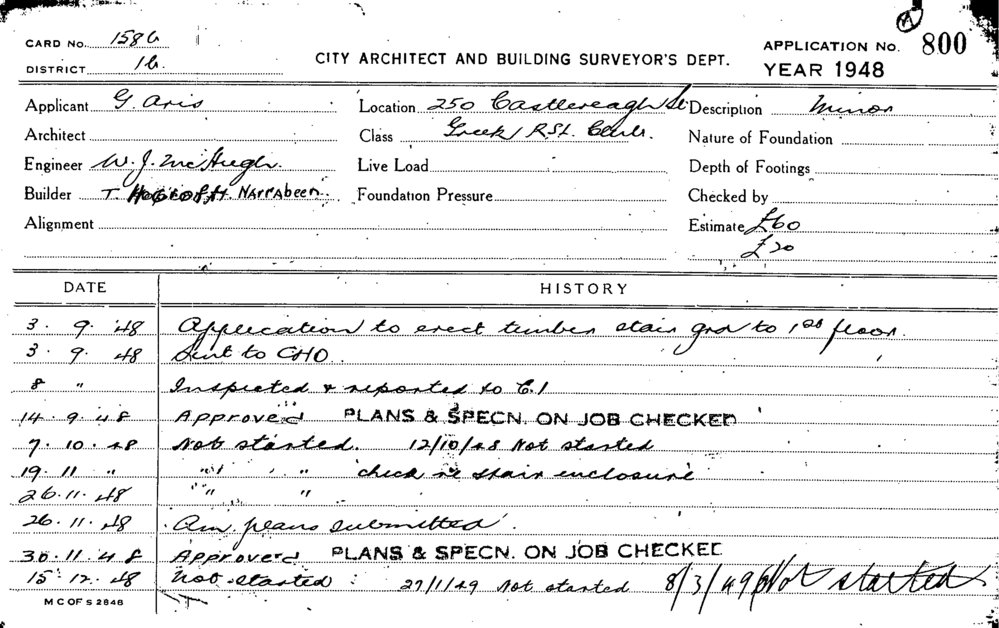 CARD NO. 1586
DISTRICT 16.
CITY ARCHITECT AND BUILDING SURVEYOR'S DEPT.
A
APPLICATION NO. 800
YEAR 1948
Applicant G. Aris
Location 250 Castlereagh St
Description Minor
Architect
Class Greek / Rst. Club.
Nature of Foundation
Engineer W. J. McHugh.
Live Load
Depth of Footings
Builder T. Narrabeen.
Foundation Pressure
Checked by
Alignment
Estimate £60
£20
DATE HISTORY
3. 9. 48 Application to erect timber stair grd to 1st floor.
3. 9. 48 Sent to CHO.
8 " Inspected & reported to C.I
14. 9. 48 Approved PLANS & SPECN. ON JOB CHECKED
7. 10. 48 Not started. 12/10/48 Not started
19. 11 " " " check re stair enclosure
26. 11. 48 " "
26. 11. 48 Am. plans submitted.
30. 11. 48 Approved PLANS & SPECN. ON JOB CHECKED
15. 12. 48 Not started: 27/1/49 Not started 8/3/49 Not started
M C OF S 2848